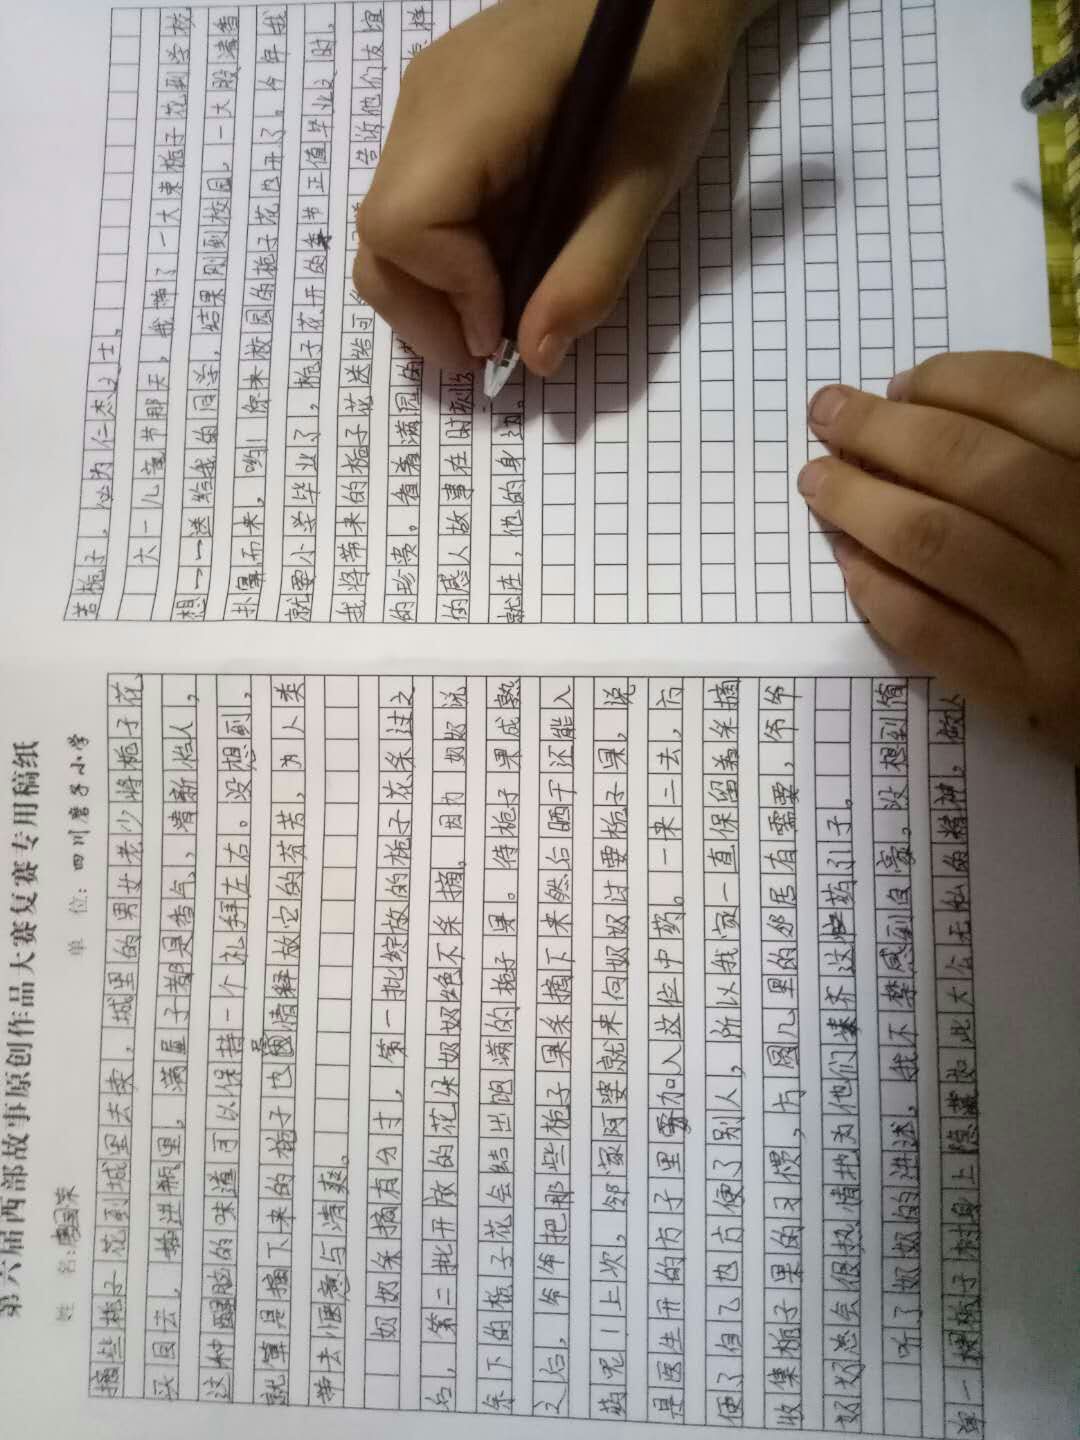 第六届西部故事原创作品大赛复赛专用稿纸
姓 名: 单 位:四川磨子小学
摘些栀子花到城里去卖,城里的男女老少将栀子花
买回去,插进瓶里,满屋子都是香气、清新怡人,
这种醒脑的味道可以保持一个礼拜左右。没想到,
就算是摘下来的栀子也会尽情释放它的芬芳,为人类
带去惬意与清爽。
奶奶采摘有分寸,第一批绽放的栀子花采过之
后,第二批开放的花朵奶奶绝不采摘,因为奶奶说
余下的栀子花会结出饱满的栀子果。待栀子果成熟
之后,爷爷把那些栀子果采摘下来然后晒干还能入
药呢!上次,邻家阿婆就来向奶奶讨要栀子果,说
是医生开的方子里要加入这位中药。一来二去,方
便了自己也方便了别人,所以我家一直保留着采摘
收集栀子果的习惯,方圆几里的邻居有需要,爷爷
奶奶总会很热情地为他们凑齐这些药引子。
听了奶奶的讲述,我不禁感到自豪。没想到简
单一棵栀子树身上隐藏如此大公无私的精神,做人
若栀子,必为仁杰之士。
六一儿童节那天,我带了一大束栀子花到学校
想一一送给我的同学,结果刚到校园,一大股清香
扑鼻而来,哟!原来校园的栀子花也开了。今年我
就要小学毕业了,栀子花开的季节正值毕业之时,
我将带来的栀子花送给 告诉他们友谊
的珍贵。看着满园的 怎样
的感人故事在时刻
就在,他的身边。